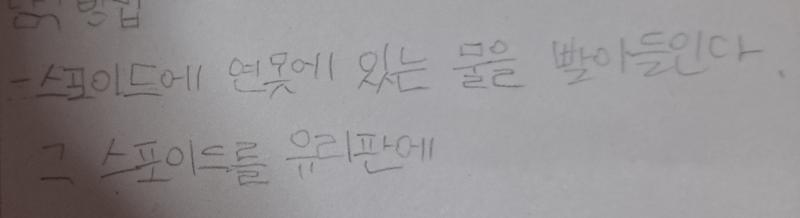 방법
-스포이드에 연못에 있는 물을 빨아들인다.
그 스포이드를 유리판에